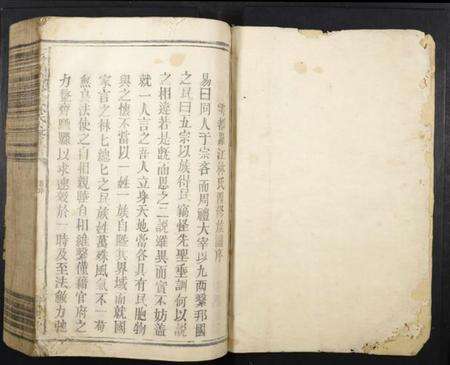 雩都縣江林氏重修族譜序
易曰同人于宗吝而周禮大宰以九兩繫邦國
之民曰五宗以族得民竊怪先聖垂訓何以說
之相遠若是旣而思之二說雖異而實不妨蓋
就一人言之吾人立身天地當各具有民胞物
與之懷不當以一姓一族自畛其界域而就國
家言之林七總匕之民族姓萬殊風氣不一苟
無 立法使之自相親睦自相維繫僅藉官府之
力 縣以求速 於一時及至法敝力弛